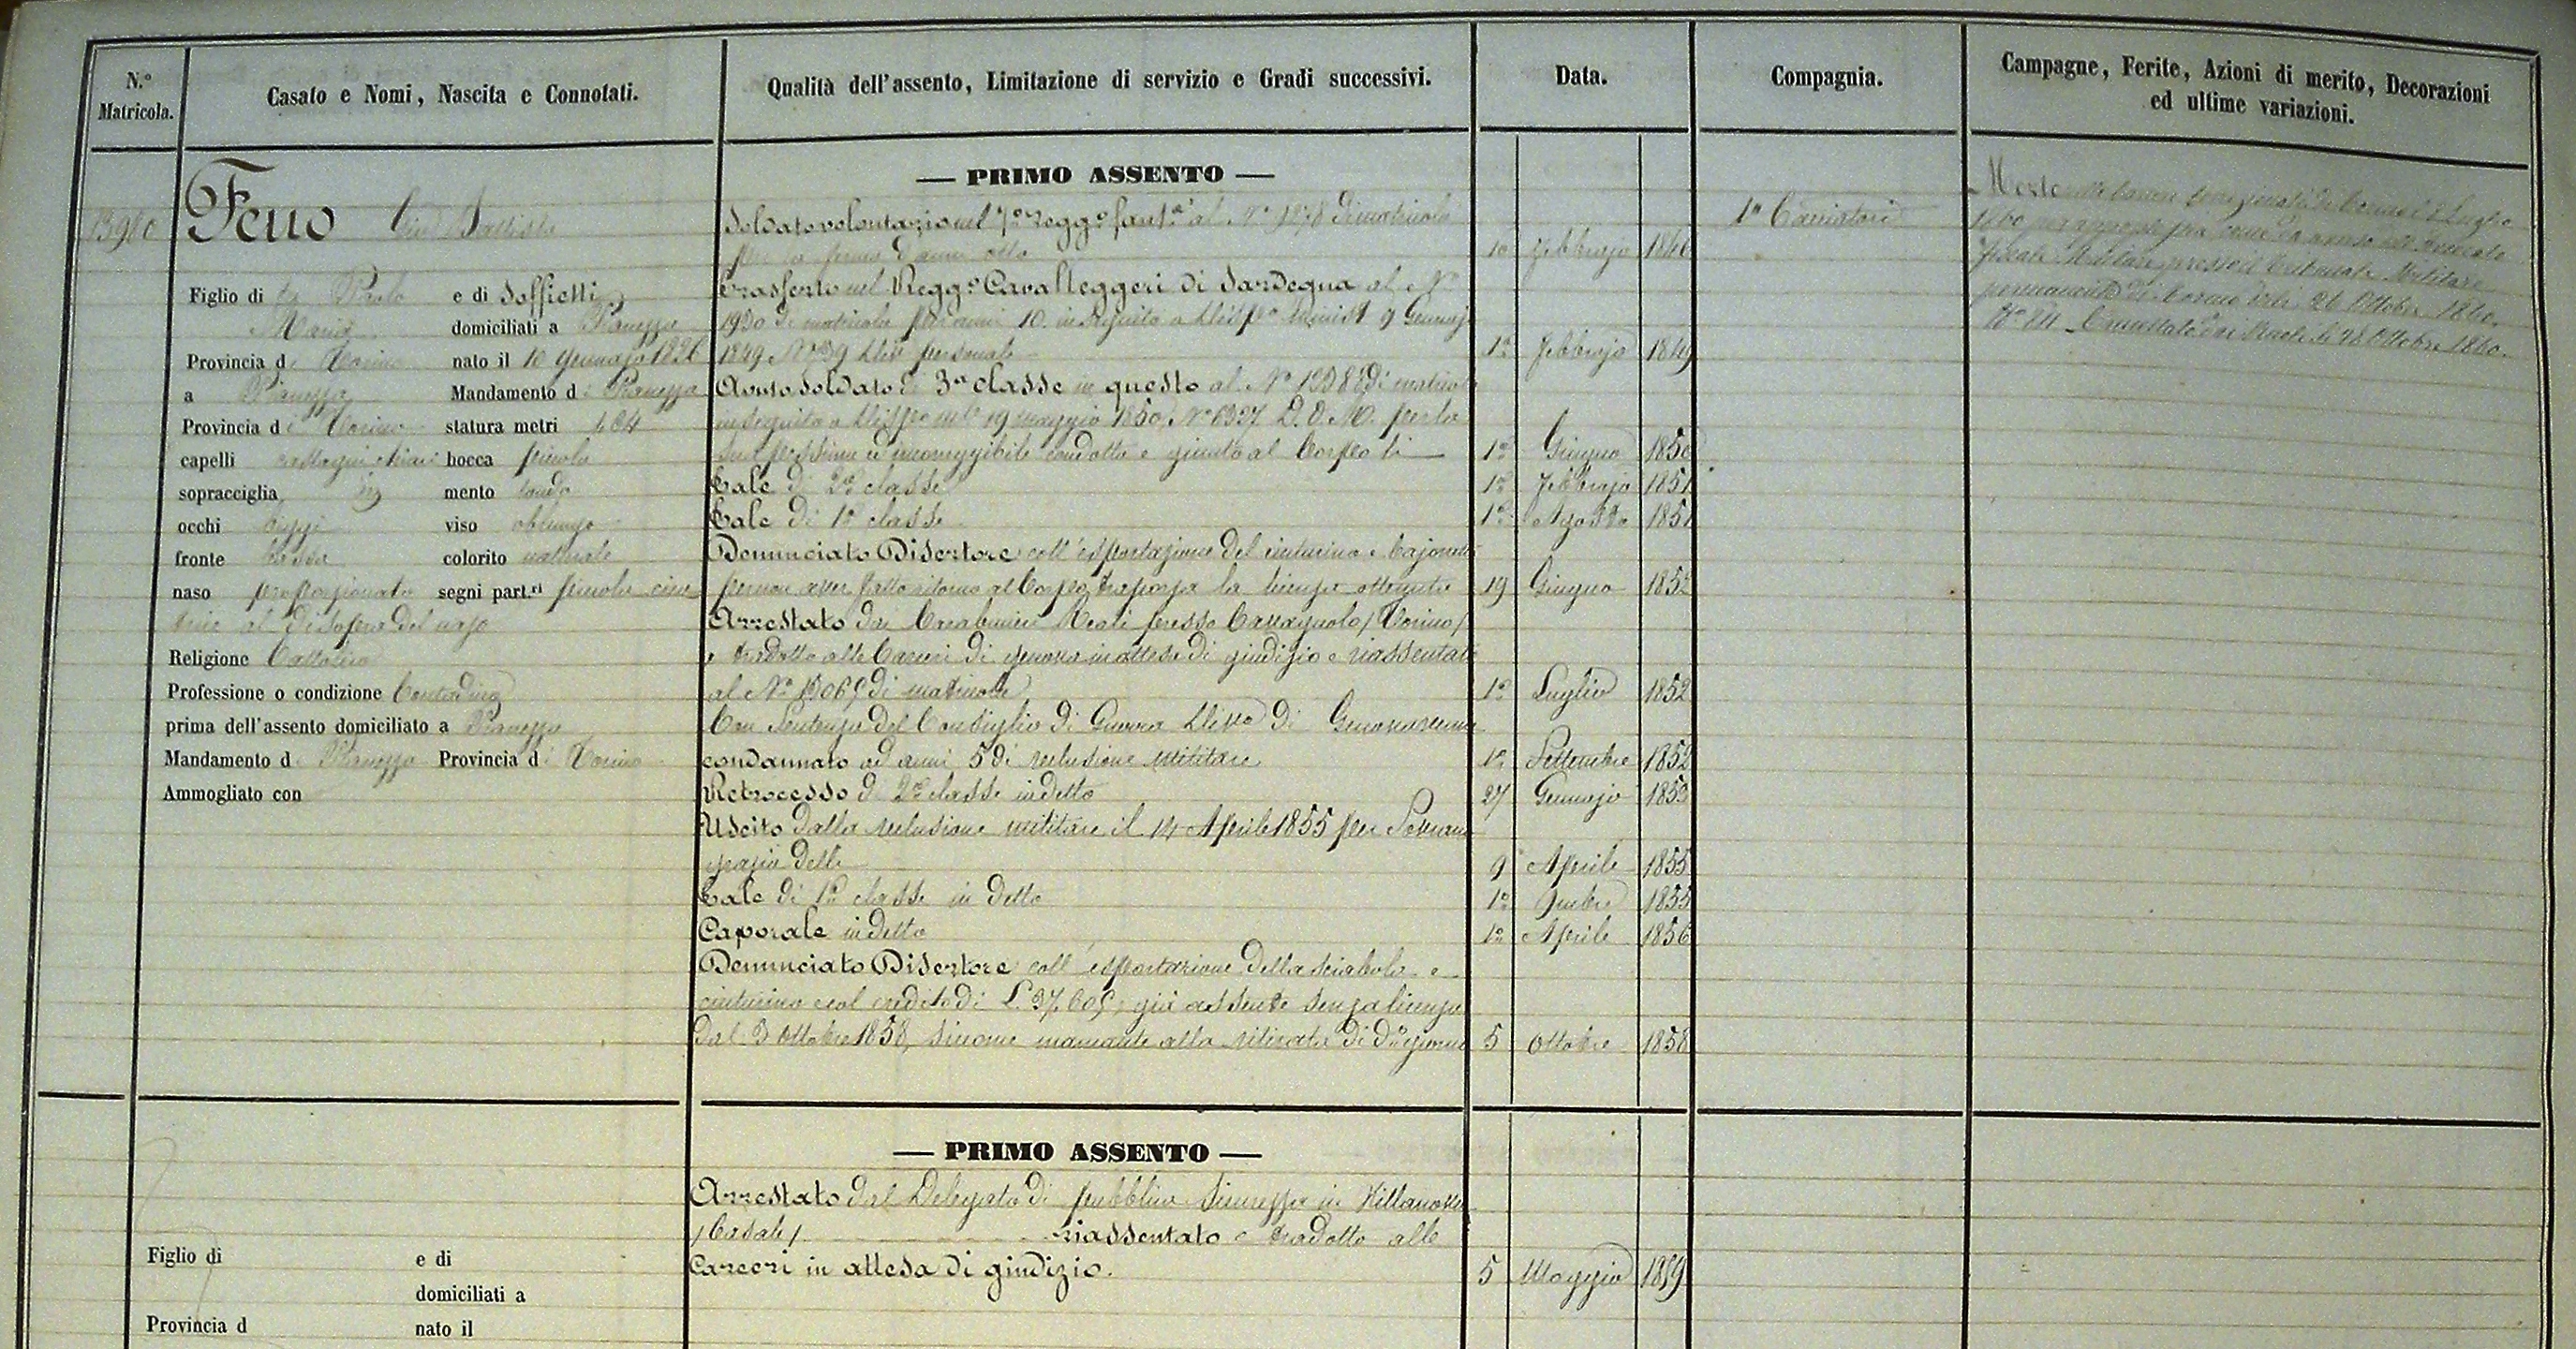 N.º Matricola.
Casato e Nomi, Nascita e Connotati.
Qualità dell'assento, Limitazione di servizio e Gradi successivi.
Data.
Compagnia.
Campagne, Ferite, Azioni di merito, Decorazioni
ed ultime variazioni.
13980
Ferro Gio Battista
Figlio di fu Paolo e di Soffietti
Maria domiciliati a Pianezza
Provincia di Torino nato il 10 Gennajo 1826
a Pianezza Mandamento di Pianezza
Provincia di Torino statura metri 1,64
capelli castagni chiari bocca piccola
sopracciglia id mento tondo
occhi bigi viso oblungo
fronte bassa colorito naturale
naso proporzionato segni part.ri piccola cica
trice al disopra del naso
Religione Cattolica
Professione o condizione Contadino
prima dell'assento domiciliato a Pianezza
Mandamento di Pianezza Provincia di Torino
Ammogliato con
— PRIMO ASSENTO —
Soldato volontario nel 7º regg.º fant.ª al Nº di matricola
per la ferma d'anni otto 10 Febbrajo 1846
Trasferto nel Regg.º Cavalleggeri di Sardegna al Nº
1930 di matricola per anni 10. in seguito a Disp.º Minist 9 Gennaj
1849 Nº 39 personale 1º Febbrajo 1849
Ammesso soldato di 3ª classe in questo al Nº di matricola
in seguito a Disp.º 19 maggio 1850 Nº 6327 D. O. M. per la
sua pessima ed incorreggibile condotta e giunto al Corpo li 1º Giugno 1850
Tale di 2ª classe 1º Febbrajo 1851
Tale di 1ª classe 1º Agosto 1851
Denunciato Disertore coll'esportazione del cinturino e bajonetta
per non aver fatto ritorno al Corpo trascorsa la licenza ottenuta 19 Giugno 1852
Arrestato dai Carabinieri Reali presso Cavagnolo /Torino/
e tradotto alle Carceri di Genova in attesa di giudizio e riassentato
al Nº 13065 di matricola 1º Luglio 1852
Con Sentenza del Consiglio di Guerra Divis.º di Genova venne
condannato ad anni 5 di reclusione militare 1º Settembre 1852
Retrocesso di 2ª classe in detto 27 Gennajo 1853
Uscito dalla reclusione militare il 14 Aprile 1855 per Sovrana
grazia delli 9 Aprile 1855
Tale di 1ª classe in detto 1º 9mbre 1855
Caporale in detto 1º Aprile 1856
Denunciato Disertore coll'esportazione della sciabola e
cinturino e col credito di L. 37.605, già assente senza licenza
dal 3 Ottobre 1858, siccome mancante alla ritirata di dº giorno 5 Ottobre 1858
1ª Cacciatori
Morto nelle carceri di Torino il 2 Luglio
1860 per come da avviso dell'Avvocato
Fiscale Militare presso il Tribunale Militare
permanente di Torino delli 26 Ottobre 1860.
Nº 84 Cancellato dai Ruoli li 28 Ottobre 1860.
— PRIMO ASSENTO —
Arrestato dal Delegato di pubblica Sicurezza in Villanova
/Casale/ riassentato e tradotto alle
Carceri in attesa di giudizio. 5 Maggio 1859
Figlio di e di
domiciliati a
Provincia d nato il